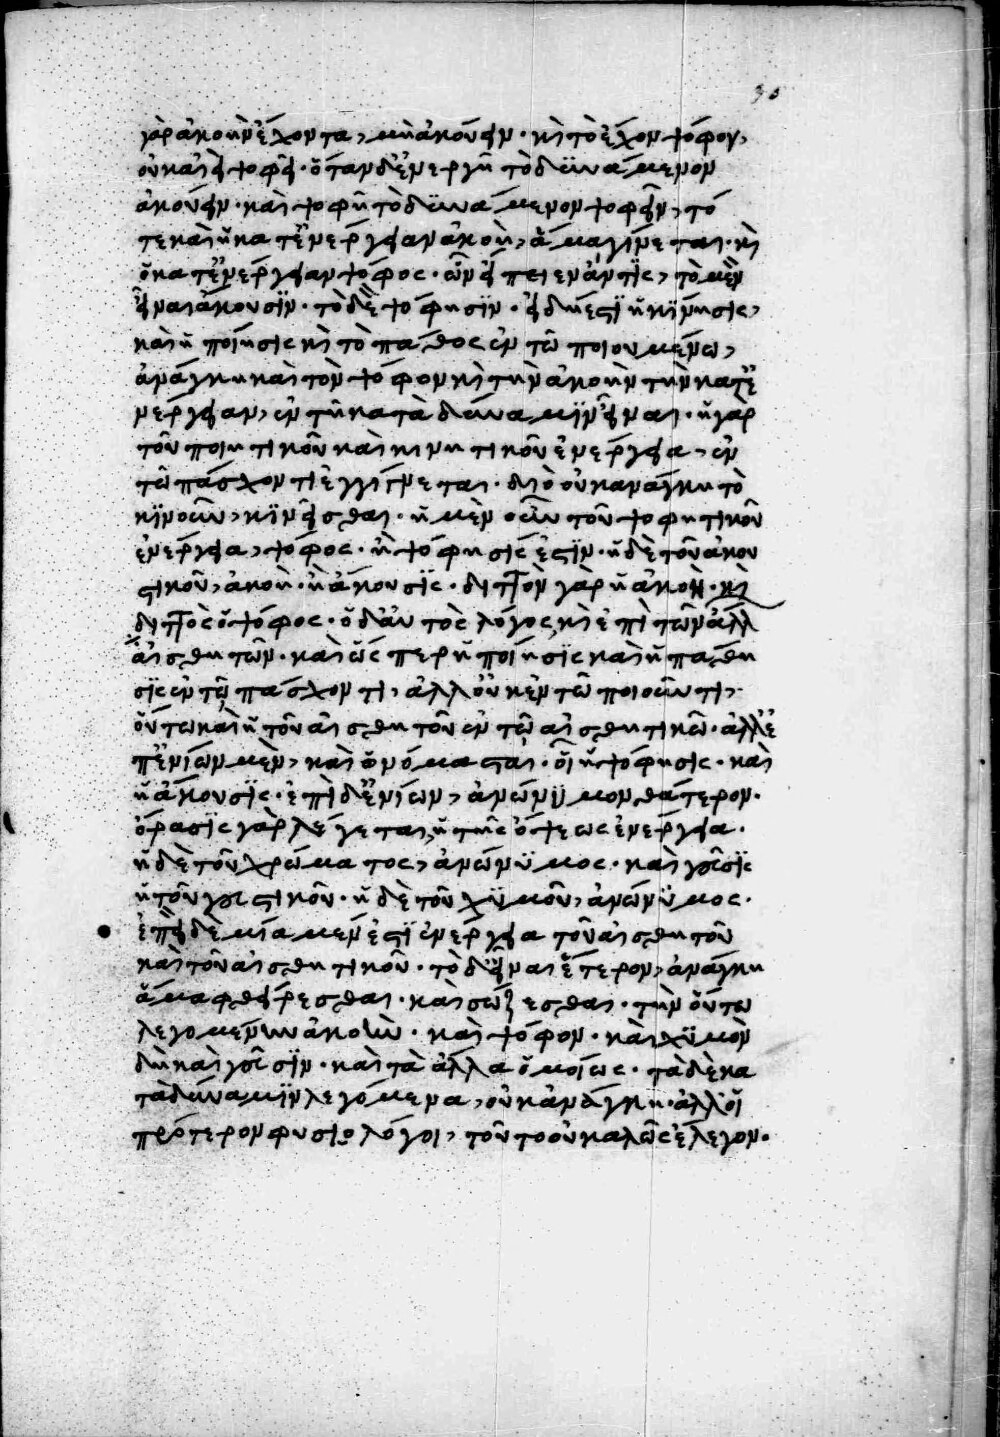 γὰρ ἀκοὴν ἔχοντα, μὴ ἀκούειν· κὶ τὸ ἔχον ψόφον,
οὐκ ἀεὶ ψοφεῖ· ὅταν δ' ἐνεργῆ τὸ δυνάμενον
ἀκούειν· καὶ ψοφῆ τὸ δυνάμενον ψοφεῖν, τό
τε καὶ ἡ κατ' ἐνέργειαν ἀκοὴ, ἅμα γίνεται· κὶ
ὁ κατ' ἐνέργειαν ψόφος· ὧν εἴπειεν ἄν τις, τὸ μὲν
εἶναι ἄκουσιν· τὸ δὲ ψόφησιν· εἰ δή ἐστιν ἡ κίνησις,
καὶ ἡ ποίησις κὶ τὸ πάθος ἐν τῶ ποιουμένω,
ἀνάγκη καὶ τὸν ψόφον κὶ τὴν ἀκοὴν τὴν κατ' ἐ
νέργειαν, ἐν τῆ κατὰ δύναμιν εἶναι· ἡ γὰρ
τοῦ ποιητικοῦ καὶ κινητικοῦ ἐνέργεια, ἐν
τῶ πάσχοντι ἐγγίνεται· διὸ οὐκ ἀνάγκη τὸ
κινοῦν, κινεῖσθαι· ἡ μὲν οὖν τοῦ ψοφητικοῦ
ἐνέργεια, ψόφος· ἢ ψόφησίς ἐστιν· ἡ δὲ τοῦ ἀκου
στικοῦ, ἀκοὴ· ἢ ἄκουσις· διττὸν γὰρ ἡ ἀκοή· κὶ
διττὸς ὁ ψόφος· ὁ δ' αὐτὸς λόγος κὶ ἐπὶ τῶν ἄλλ
αἰσθητῶν· καὶ ὥσπερ ἡ ποίησις καὶ ἡ πάθη
σις ἐν τῶ πάσχοντι, ἀλλ' οὐκ ἐν τῶ ποιοῦντι,
οὕτω καὶ ἡ τοῦ αἰσθητοῦ ἐν τῶ αἰσθητικῶ· ἀλλ' ἐ
π' ἐνίων μὲν, καὶ ὠνόμασται· οἷ ἡ ψόφησις· καὶ
ἡ ἄκουσις· ἐπὶ δ' ἐνίων, ἀνώνυμον θάτερον·
ὅρασις γὰρ λέγεται, ἡ τῆς ὄψεως ἐνέργεια·
ἡ δὲ τοῦ χρώματος, ἀνώνυμος· καὶ γεῦσις
ἡ τοῦ γευστικοῦ· ἡ δὲ τοῦ χυμοῦ, ἀνώνυμος·
ἐπεὶ δὲ μία μέν ἐστιν ἐνέργεια τοῦ αἰσθητοῦ
καὶ τοῦ αἰσθητικοῦ· τὸ δ' εἶναι ἕτερον, ἀνάγκη
ἅμα φθείρεσθαι· καὶ σώζεσθαι· τὴν οὕτω
λεγομένην ἀκοὴν· καὶ ψόφον· καὶ χυμὸν
δὴ καὶ γεῦσιν· καὶ τὰ ἄλλα ὁμοίως· τὰ δὲ κα
τὰ δύναμιν λεγόμενα, οὐκ ἀνάγκη· ἀλλ' οἱ
πρότερον φυσιολόγοι, τοῦτο οὐ καλῶς ἔλεγον·